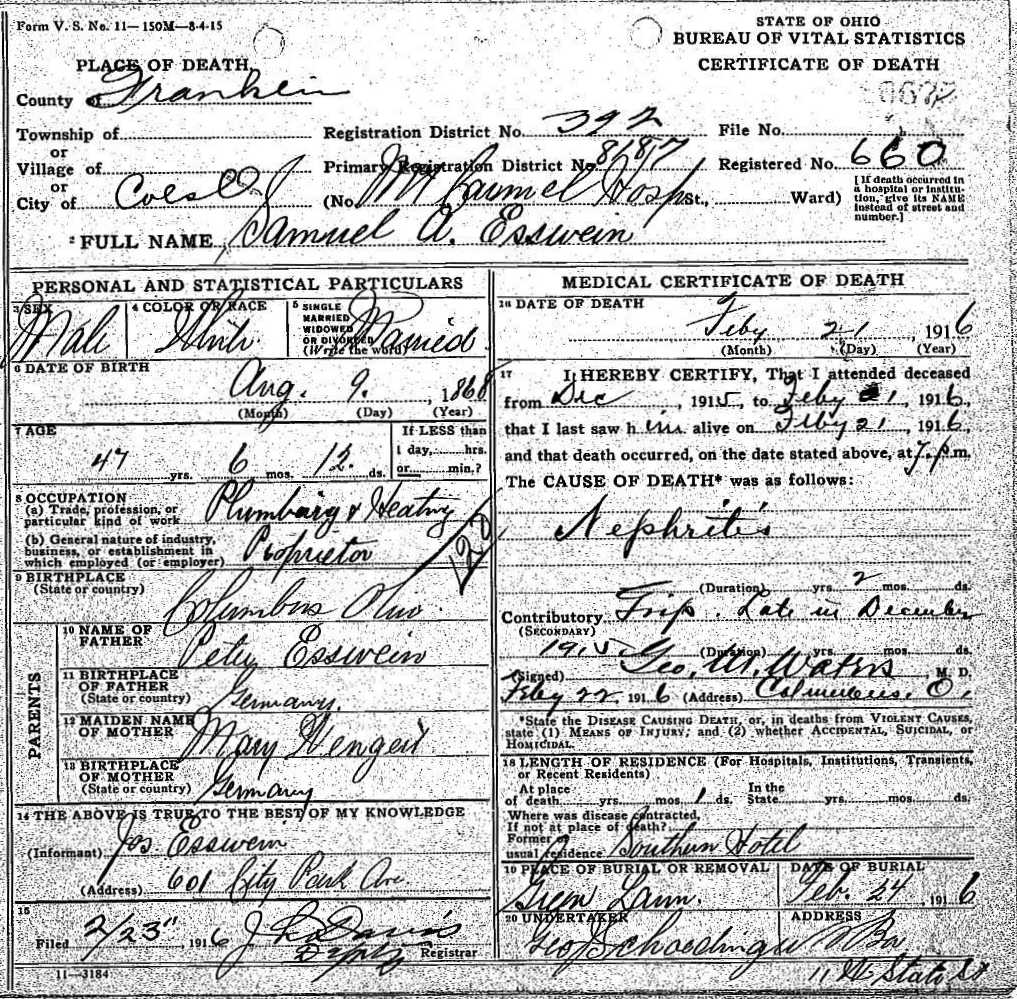 Form V. S. No. 11—150M—8-4-15
STATE OF OHIO
BUREAU OF VITAL STATISTICS
CERTIFICATE OF DEATH
PLACE OF DEATH
County of Franklin
Township of
or
Village of
or
City of
Registration District No. 392
File No.
Primary Registration District No. 8187
Registered No. 660
(No. Mt Carmel Hosp St., Ward)
[If death occurred in
a hospital or institu-
tion, give its NAME
instead of street and
number.]
2 FULL NAME Samuel A. Esswein
PERSONAL AND STATISTICAL PARTICULARS
3 SEX Male
4 COLOR OR RACE White
5 SINGLE
MARRIED
WIDOWED
OR DIVORCED
(Write the word) Married
6 DATE OF BIRTH
Aug. 9. , 1868
(Month) (Day) (Year)
7 AGE
47 yrs. 6 mos. 12 ds.
If LESS than
1 day, hrs.
or min.?
8 OCCUPATION
(a) Trade, profession, or
particular kind of work Plumbing & Heating
(b) General nature of industry,
business, or establishment in
which employed (or employer) Proprietor
9 BIRTHPLACE
(State or country) Columbus Ohio
PARENTS
10 NAME OF
FATHER Peter Esswein
11 BIRTHPLACE
OF FATHER
(State or country) Germany.
12 MAIDEN NAME
OF MOTHER Mary
13 BIRTHPLACE
OF MOTHER
(State or country) Germany
14 THE ABOVE IS TRUE TO THE BEST OF MY KNOWLEDGE
(Informant) Jos. Esswein
(Address) 601 City Park Ave
15
Filed 2/23" , 1916 Davis
Dpty Registrar
11—3184
MEDICAL CERTIFICATE OF DEATH
16 DATE OF DEATH
Feby 21 , 1916
(Month) (Day) (Year)
17 I HEREBY CERTIFY, That I attended deceased
from Dec , 1915, to Feby 21, 1916,
that I last saw him alive on Feby 21, 1916,
and that death occurred, on the date stated above, at 7.p.m.
The CAUSE OF DEATH* was as follows:
Nephritis
(Duration) yrs. 2 mos. ds.
Contributory Late in December
(SECONDARY)
1915. (Duration) yrs. mos. ds.
(Signed) Geo. M. Waters M. D.
Feby 22 1916 (Address) Columbus. O.
*State the DISEASE CAUSING DEATH, or, in deaths from VIOLENT CAUSES,
state (1) MEANS OF INJURY; and (2) whether ACCIDENTAL, SUICIDAL, or
HOMICIDAL.
18 LENGTH OF RESIDENCE (For Hospitals, Institutions, Transients,
or Recent Residents)
At place In the
of death yrs. mos. 1 ds. State yrs. mos. ds.
Where was disease contracted,
If not at place of death?
Former or
usual residence Southern Hotel
19 PLACE OF BURIAL OR REMOVAL
Green Lawn.
DATE OF BURIAL
Feb. 24 , 1916
20 UNDERTAKER
Geo Schoedinger
ADDRESS
State St